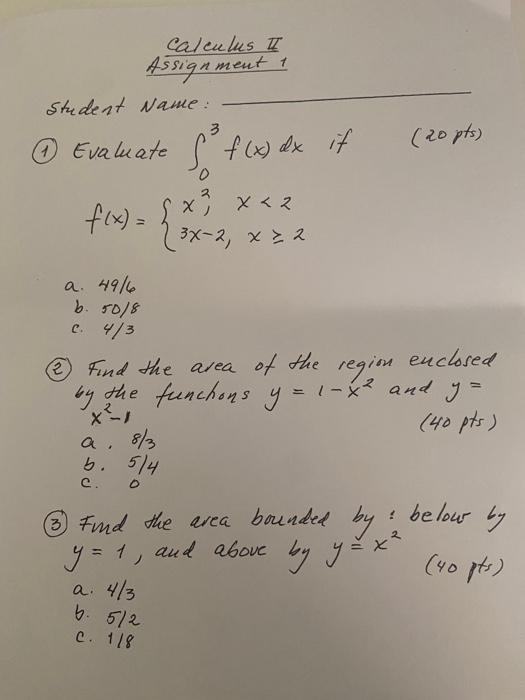 Calculus II
Assignment 1
Student Name:
① Evaluate ∫₀³ f(x) dx if (20 pts)
f(x) = { x², x < 2
3x-2, x ≥ 2
a. 49/6
b. 50/8
c. 4/3
② Find the area of the region enclosed
by the functions y = 1-x² and y =
x²-1 (40 pts)
a. 8/3
b. 5/4
c. 0
③ Find the area bounded by : below by
y = 1, and above by y = x²
(40 pts)
a. 4/3
b. 5/2
c. 1/8